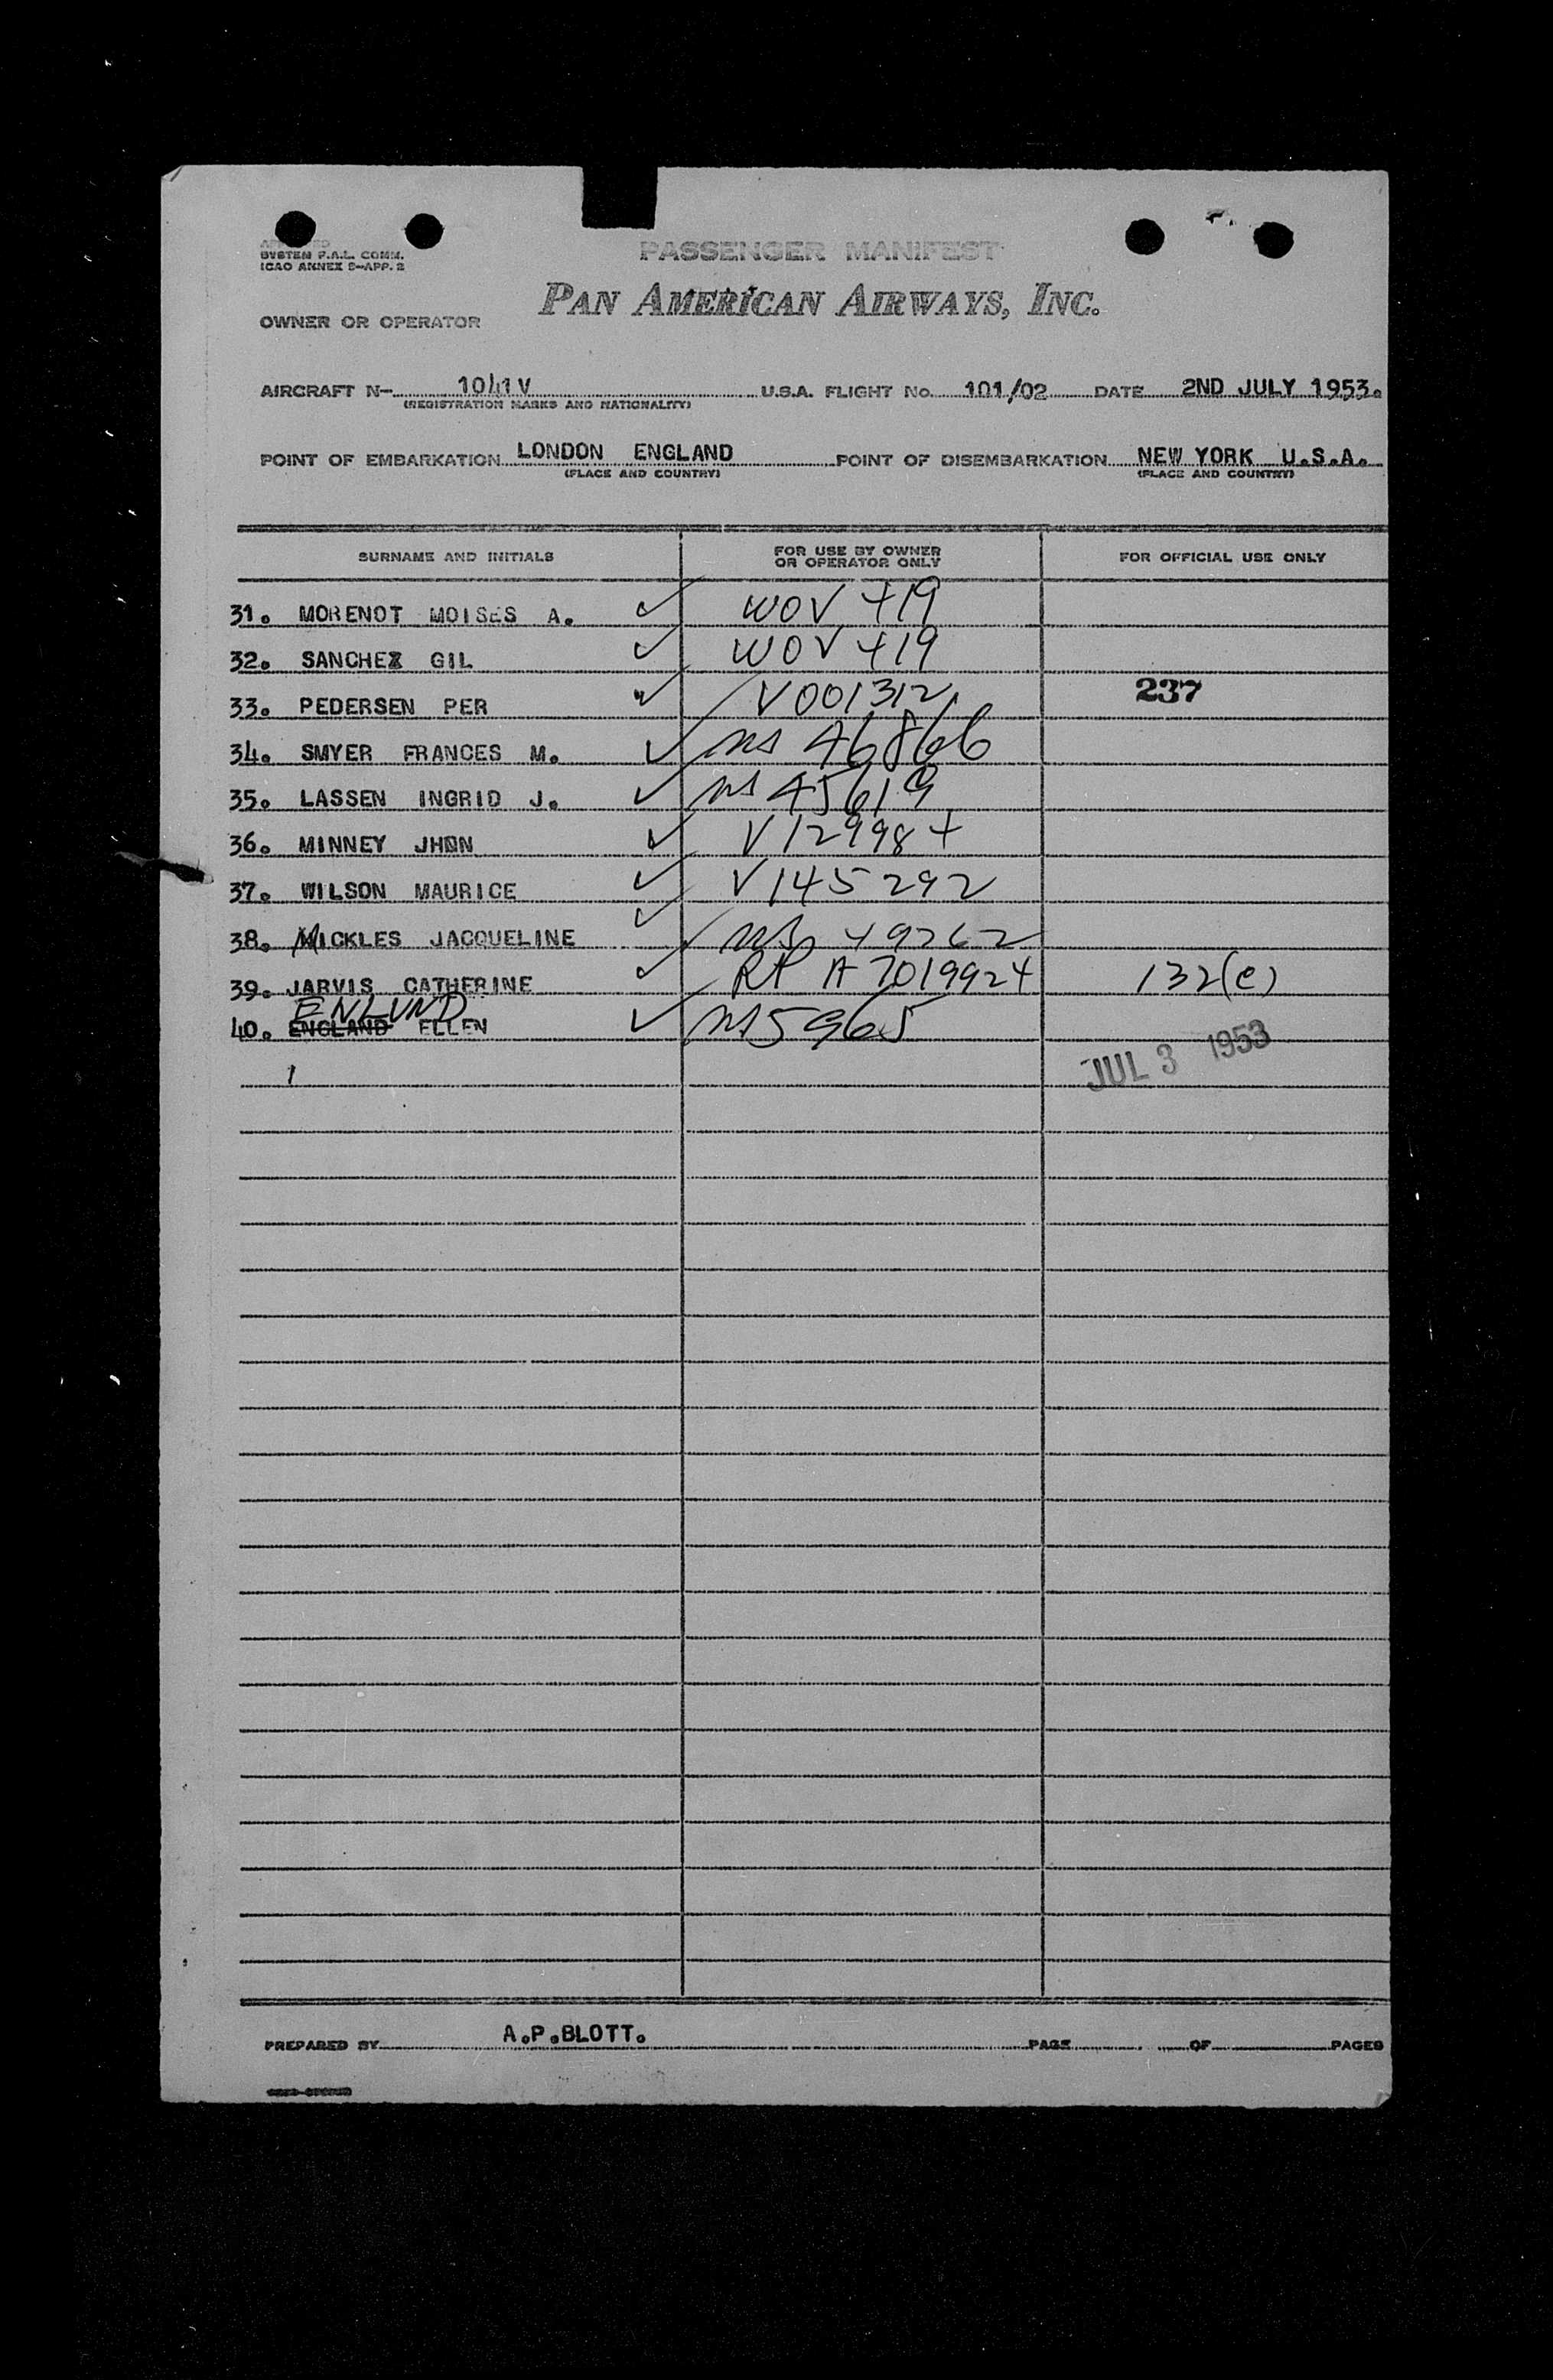 SYSTEM F.A.L. COMM.
ICAO ANNEX 9-APP. 2
PASSENGER MANIFEST
PAN AMERICAN AIRWAYS, INC.
OWNER OR OPERATOR
AIRCRAFT N- 1041V U.S.A. FLIGHT No. 101/02 DATE 2ND JULY 1953.
(REGISTRATION MARKS AND NATIONALITY)
POINT OF EMBARKATION LONDON ENGLAND POINT OF DISEMBARKATION NEW YORK U.S.A.
(PLACE AND COUNTRY) (PLACE AND COUNTRY)
SURNAME AND INITIALS FOR USE BY OWNER OR OPERATOR ONLY FOR OFFICIAL USE ONLY
31. MORENOT MOISES A. ✓ WOV 419
32. SANCHEZ GIL ✓ WOV 419
33. PEDERSEN PER ✓ V001312 237
34. SMYER FRANCES M. ✓ ns 46866
35. LASSEN INGRID J. ✓ ns 45619
36. MINNEY JHON ✓ V129984
37. WILSON MAURICE ✓ V145292
38. NICKLES JACQUELINE ✓ ns 49262
39. JARVIS CATHERINE ✓ RP A7019924 132(e)
ENLUND
40. ENGLAND ELLEN ✓ ns 5965
JUL 3 1953
PREPARED BY A.P.BLOTT. PAGE OF PAGES